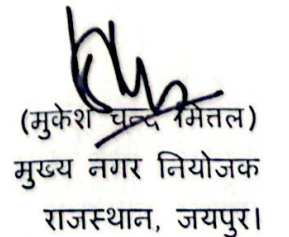 (मुकेश चन्द मित्तल)
मुख्य नगर नियोजक
राजस्थान, जयपुर।